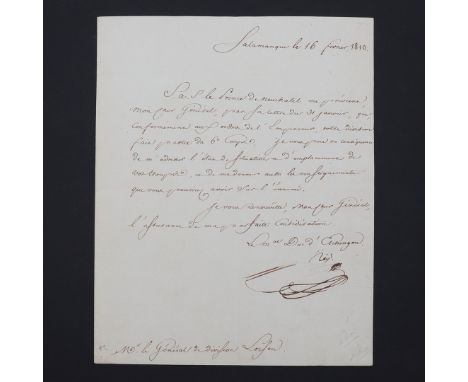 Salamanque le 16 février 1810.
S. A. S. le Prince de Neuchatel me prévient,
Monsieur Général, par sa lettre du 31 janvier, que
conformément aux ordres de l'Empereur, votre division
fait partie du 6e Corps. Je vous prie en conséquence
de m'adresser l'état de situation et d'emplacement de
vos troupes, et de me donner aussi les renseignements
que vous pourriez avoir sur l'ennemi.
Je vous renouvelle, Monsieur Général,
l'assurance de ma parfaite Considération
Le Mal Duc d'Elchingen
Ney
Mr. le Général de division Loison.